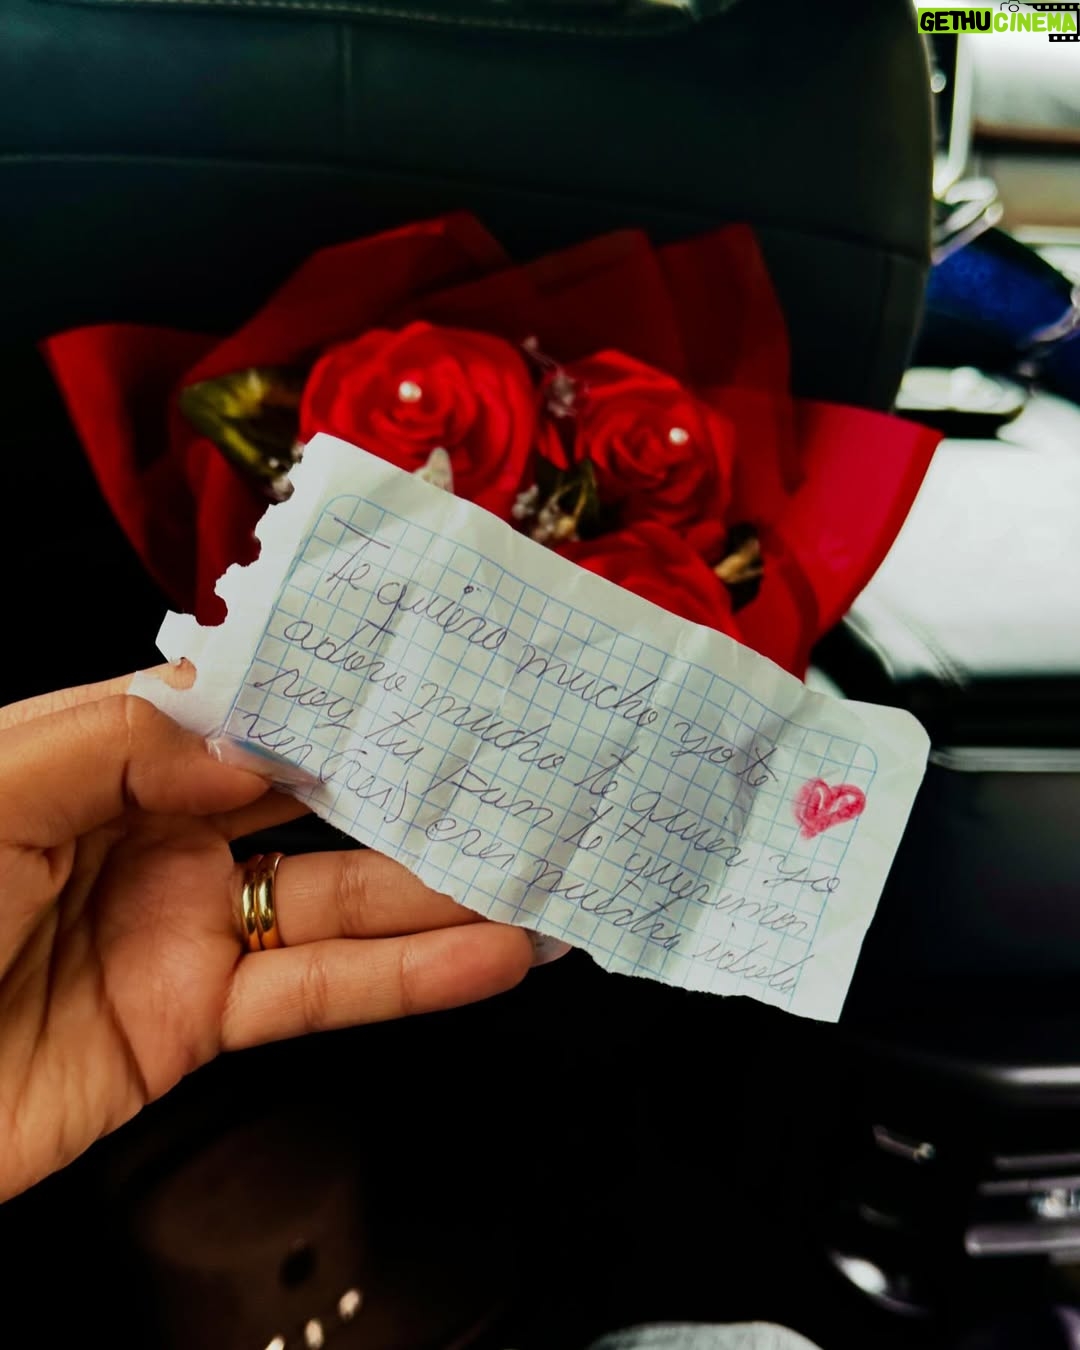 GETHUCINEMA
Te quiero mucho yo te
adoro mucho te quier yo
soy tu Fan te queremos
eres nuestra